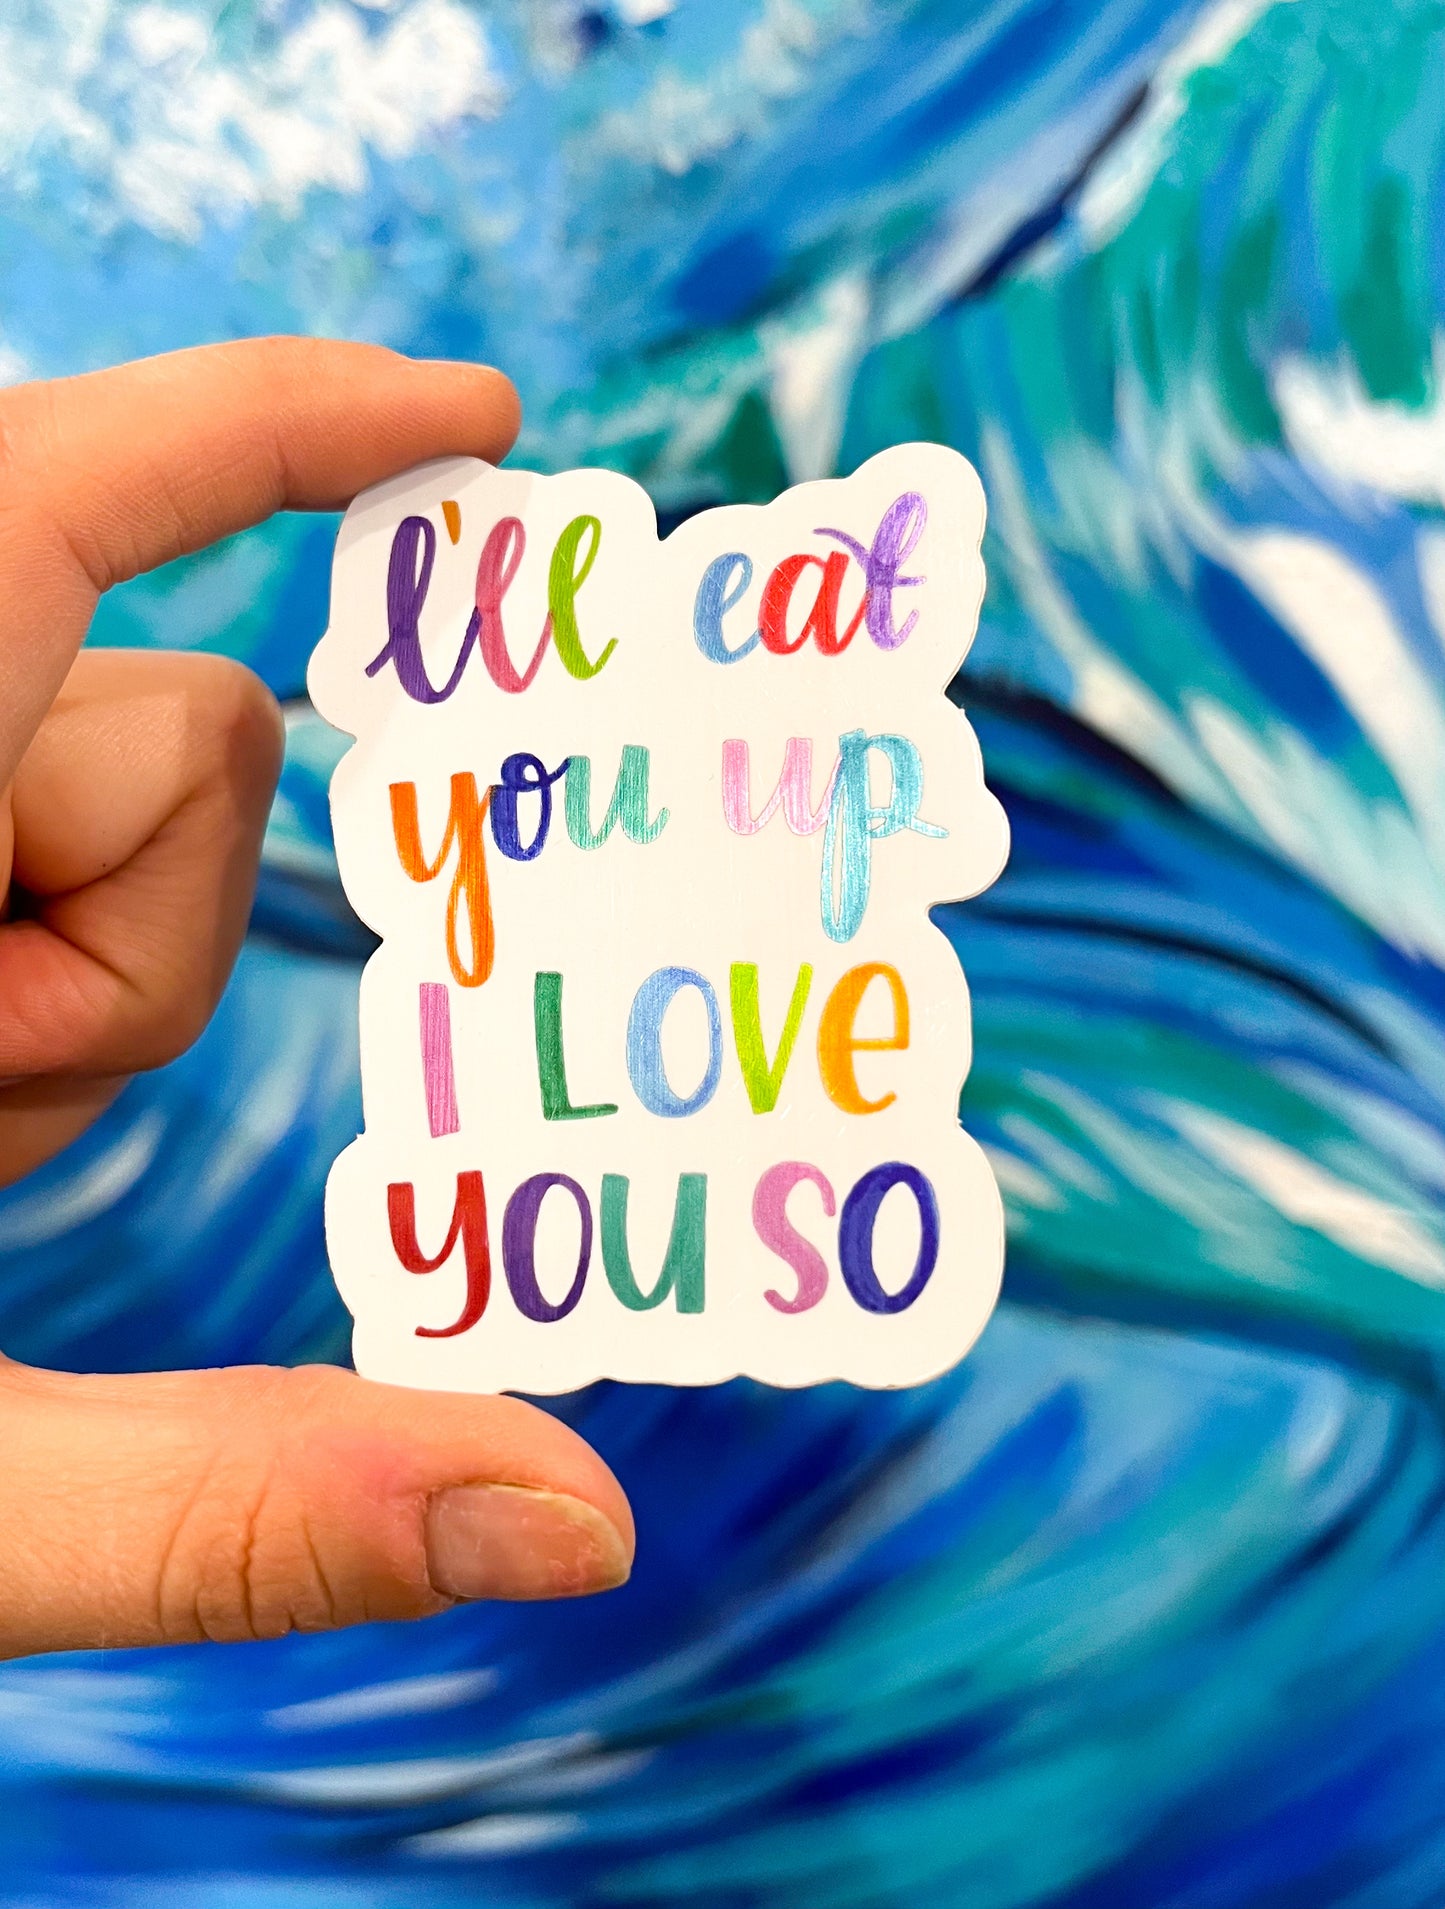 I'll eat
you up
I LOVe
YOU SO